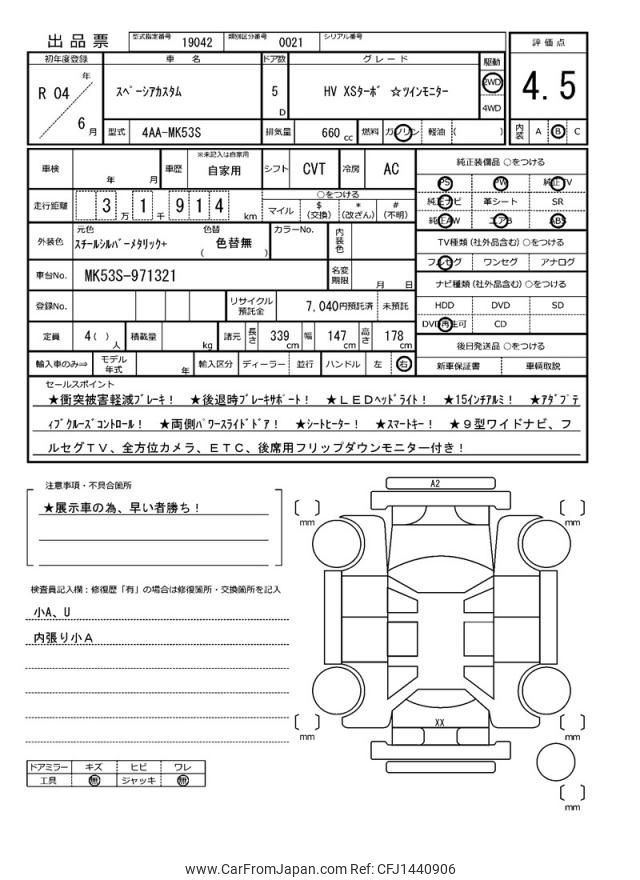 出品票 型式指定番号 19042 類別区分番号 0021 シリアル番号
評価点
4.5
内装 A B C
初年度登録 車名 ドア数 グレード 駆動
R 04 年 6 月
スペーシアカスタム 5 D HV XSターボ ☆ツインモニター 2WD
4WD
型式 4AA-MK53S 排気量 660 cc 燃料 ガソリン 軽油 ( )
車検 年 月 車歴 ※未記入は自家用 自家用 シフト CVT 冷房 AC
走行距離 3 万 1 千 9 1 4 km
○をつける
マイル $ (交換) * (改ざん) # (不明)
外装色 元色 スチールシルバーメタリック+ 色替 ( 色替無 ) カラーNo. 内装色
車台No. MK53S-971321 名変期限 月 日
登録No. リサイクル預託金 7,040円預託済 未預託
定員 4( ) 人 積載量 kg 諸元 長さ 339 cm 幅 147 cm 高さ 178 cm
輸入車のみ⇒ モデル年式 年 輸入区分 ディーラー 並行 ハンドル 左 右
純正装備品 ○をつける
PS PW 純正TV
純正ナビ 革シート SR
純正AW エアB ABS
TV種類 (社外品含む) ○をつける
フルセグ ワンセグ アナログ
ナビ種類 (社外品含む) ○をつける
HDD DVD SD
DVD再生可 CD
後日発送品 ○をつける
新車保証書 車輌取説
セールスポイント
★衝突被害軽減ブレーキ! ★後退時ブレーキサポート! ★LEDヘッドライト! ★15インチアルミ! ★アダプテ
ィブクルーズコントロール! ★両側パワースライドドア! ★シートヒーター! ★スマートキー! ★9型ワイドナビ、フ
ルセグTV、全方位カメラ、ETC、後席用フリップダウンモニター付き!
注意事項・不具合箇所
★展示車の為、早い者勝ち!
検査員記入欄:修復歴「有」の場合は修復箇所・交換箇所を記入
小A、U
内張り小A
ドアミラー キズ ヒビ ワレ
工具 無 ジャッキ 無
A2
mm
mm
XX
mm
mm
mm
www.CarFromJapan.com Ref: CFJ1440906